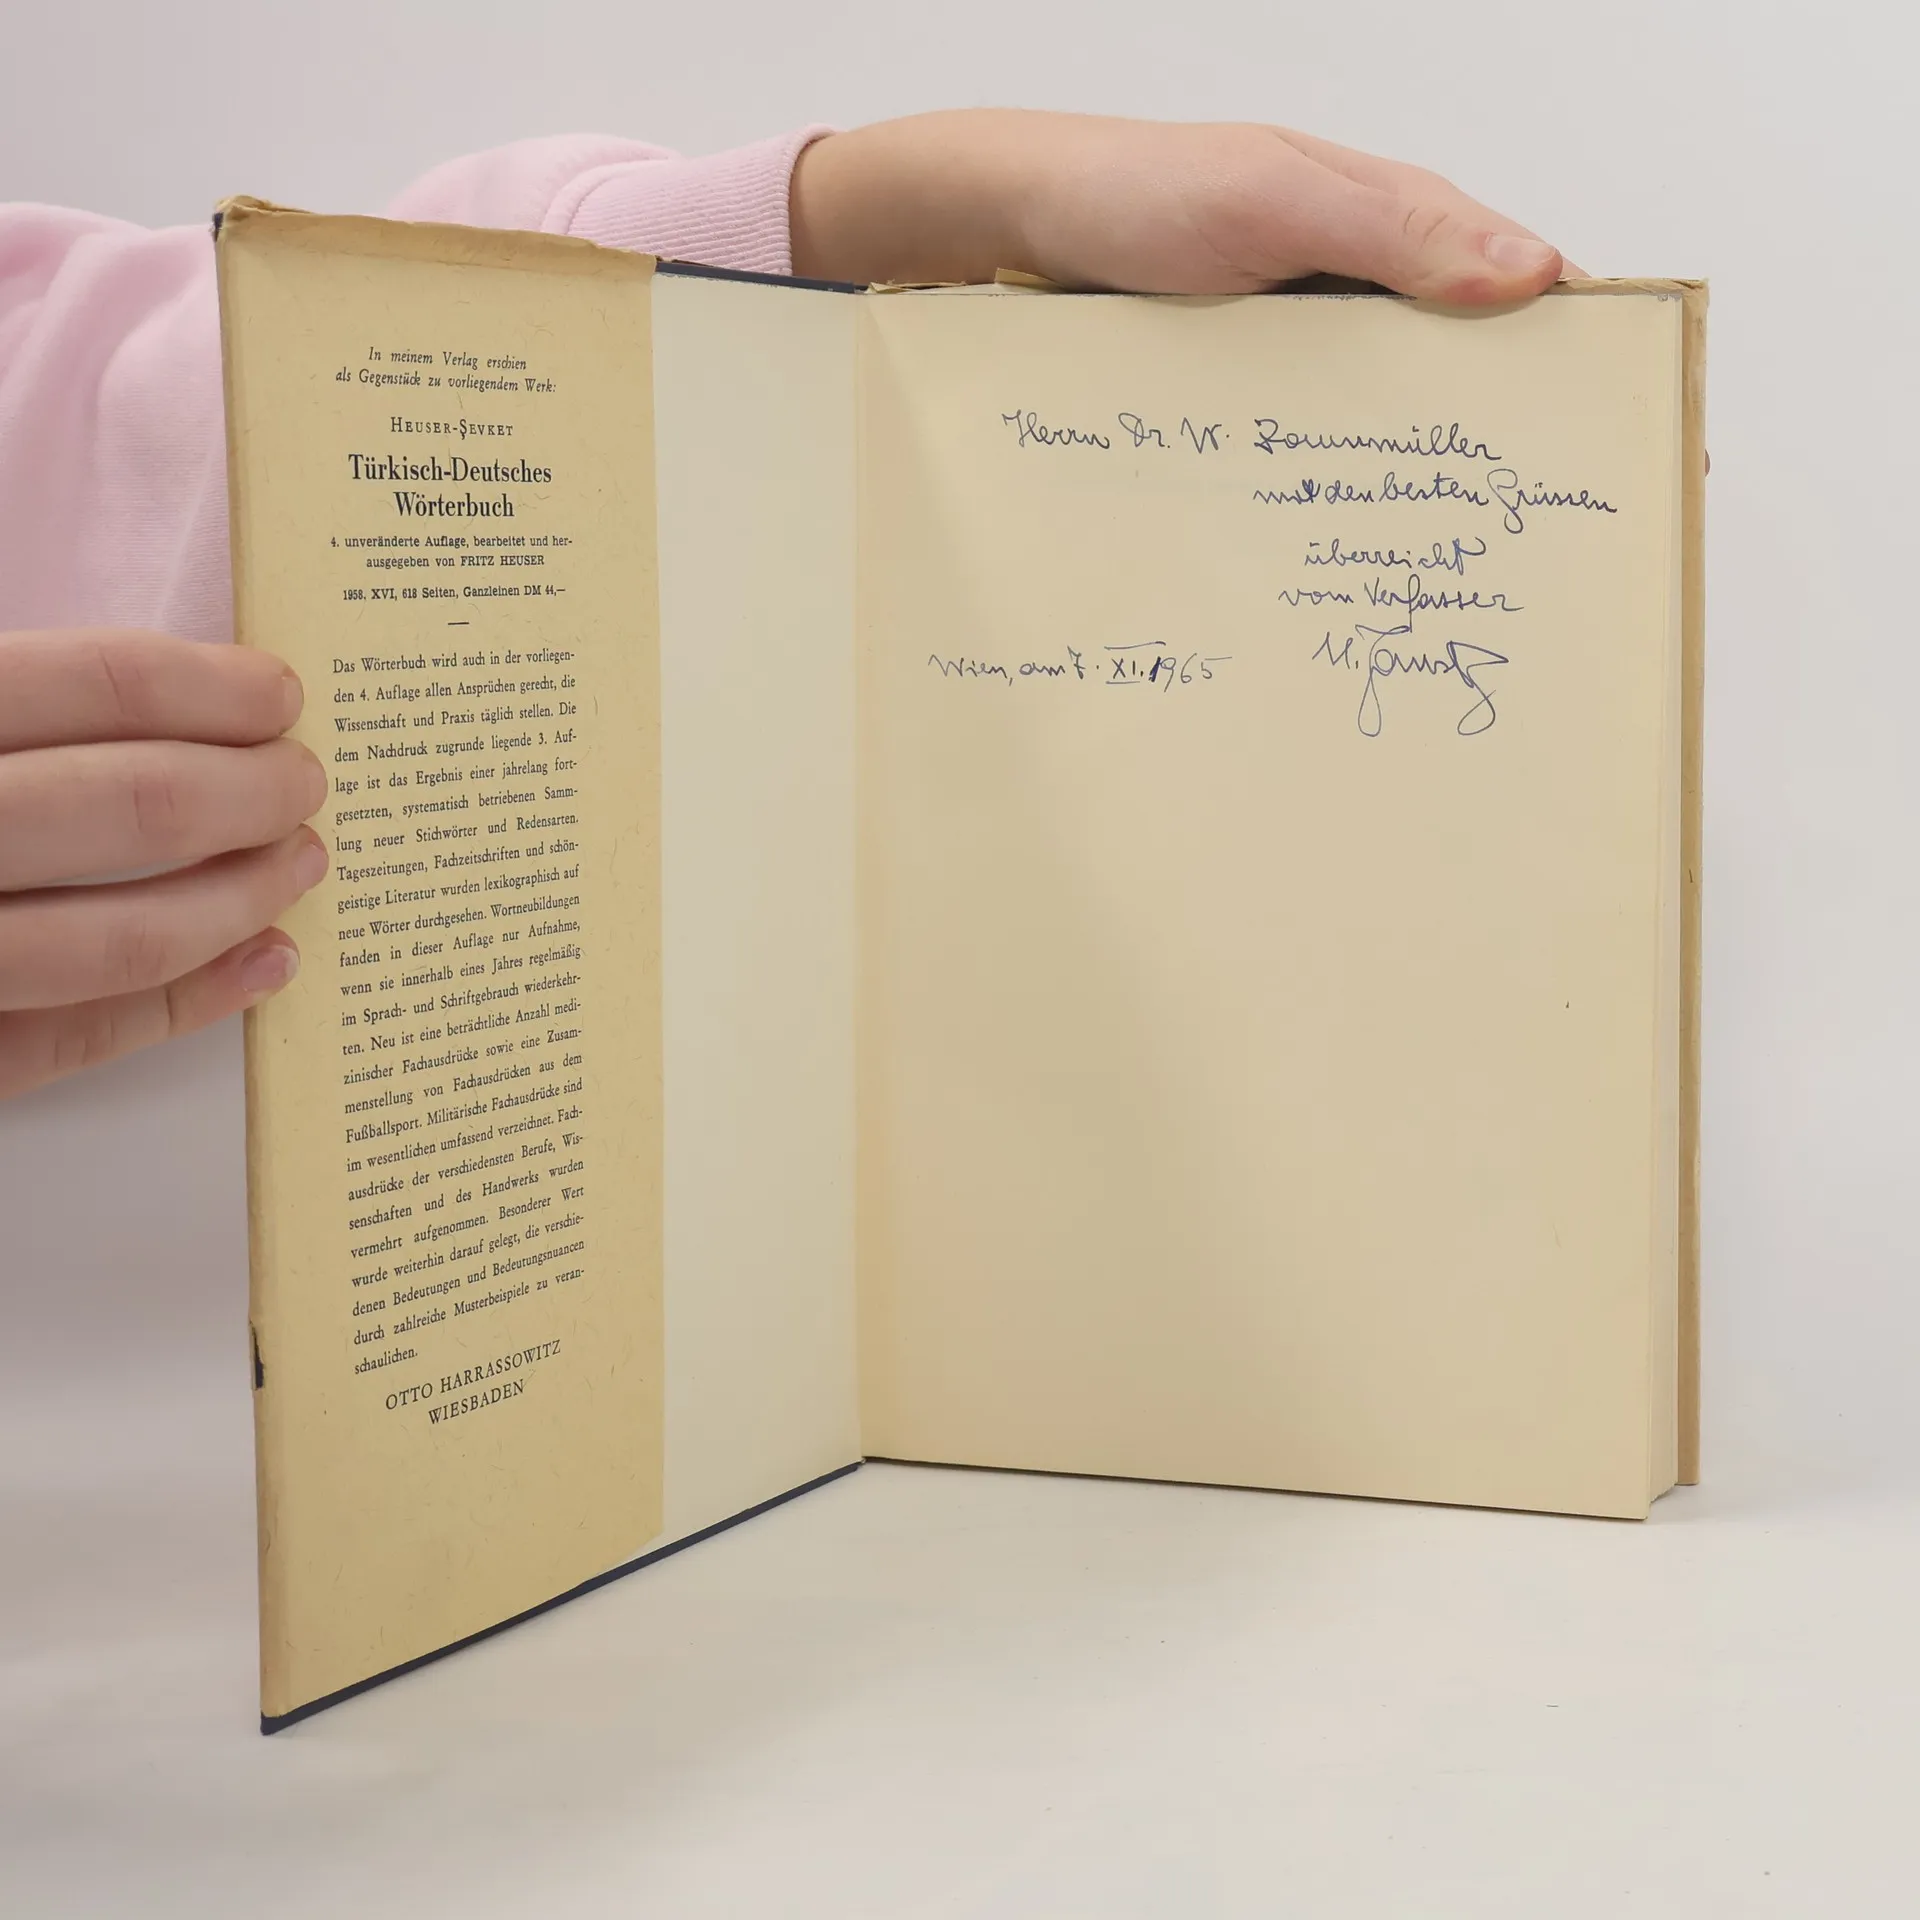 In meinem Verlag erschien
als Gegenstück zu vorliegendem Werk:
HEUSER-ŞEVKET
Türkisch-Deutsches
Wörterbuch
4. unveränderte Auflage, bearbeitet und her-
ausgegeben von FRITZ HEUSER
1958. XVI, 618 Seiten, Ganzleinen DM 44,—
Das Wörterbuch wird auch in der vorliegen-
den 4. Auflage allen Ansprüchen gerecht, die
Wissenschaft und Praxis täglich stellen. Die
dem Nachdruck zugrunde liegende 3. Auf-
lage ist das Ergebnis einer jahrelang fort-
gesetzten, systematisch betriebenen Samm-
lung neuer Stichwörter und Redensarten.
Tageszeitungen, Fachzeitschriften und schön-
geistige Literatur wurden lexikographisch auf
neue Wörter durchgesehen. Wortneubildungen
fanden in dieser Auflage nur Aufnahme,
wenn sie innerhalb eines Jahres regelmäßig
im Sprach- und Schriftgebrauch wiederkehr-
ten. Neu ist eine beträchtliche Anzahl medi-
zinischer Fachausdrücke sowie eine Zusam-
menstellung von Fachausdrücken aus dem
Fußballsport. Militärische Fachausdrücke sind
im wesentlichen umfassend verzeichnet. Fach-
ausdrücke der verschiedensten Berufe, Wis-
senschaften und des Handwerks wurden
vermehrt aufgenommen. Besonderer Wert
wurde weiterhin darauf gelegt, die verschie-
denen Bedeutungen und Bedeutungsnuancen
durch zahlreiche Musterbeispiele zu veran-
schaulichen.
OTTO HARRASSOWITZ
WIESBADEN
Herrn Dr. W.
mit den besten Grüssen
überreicht
vom Verfasser
Wien, am 7. XI. 1965